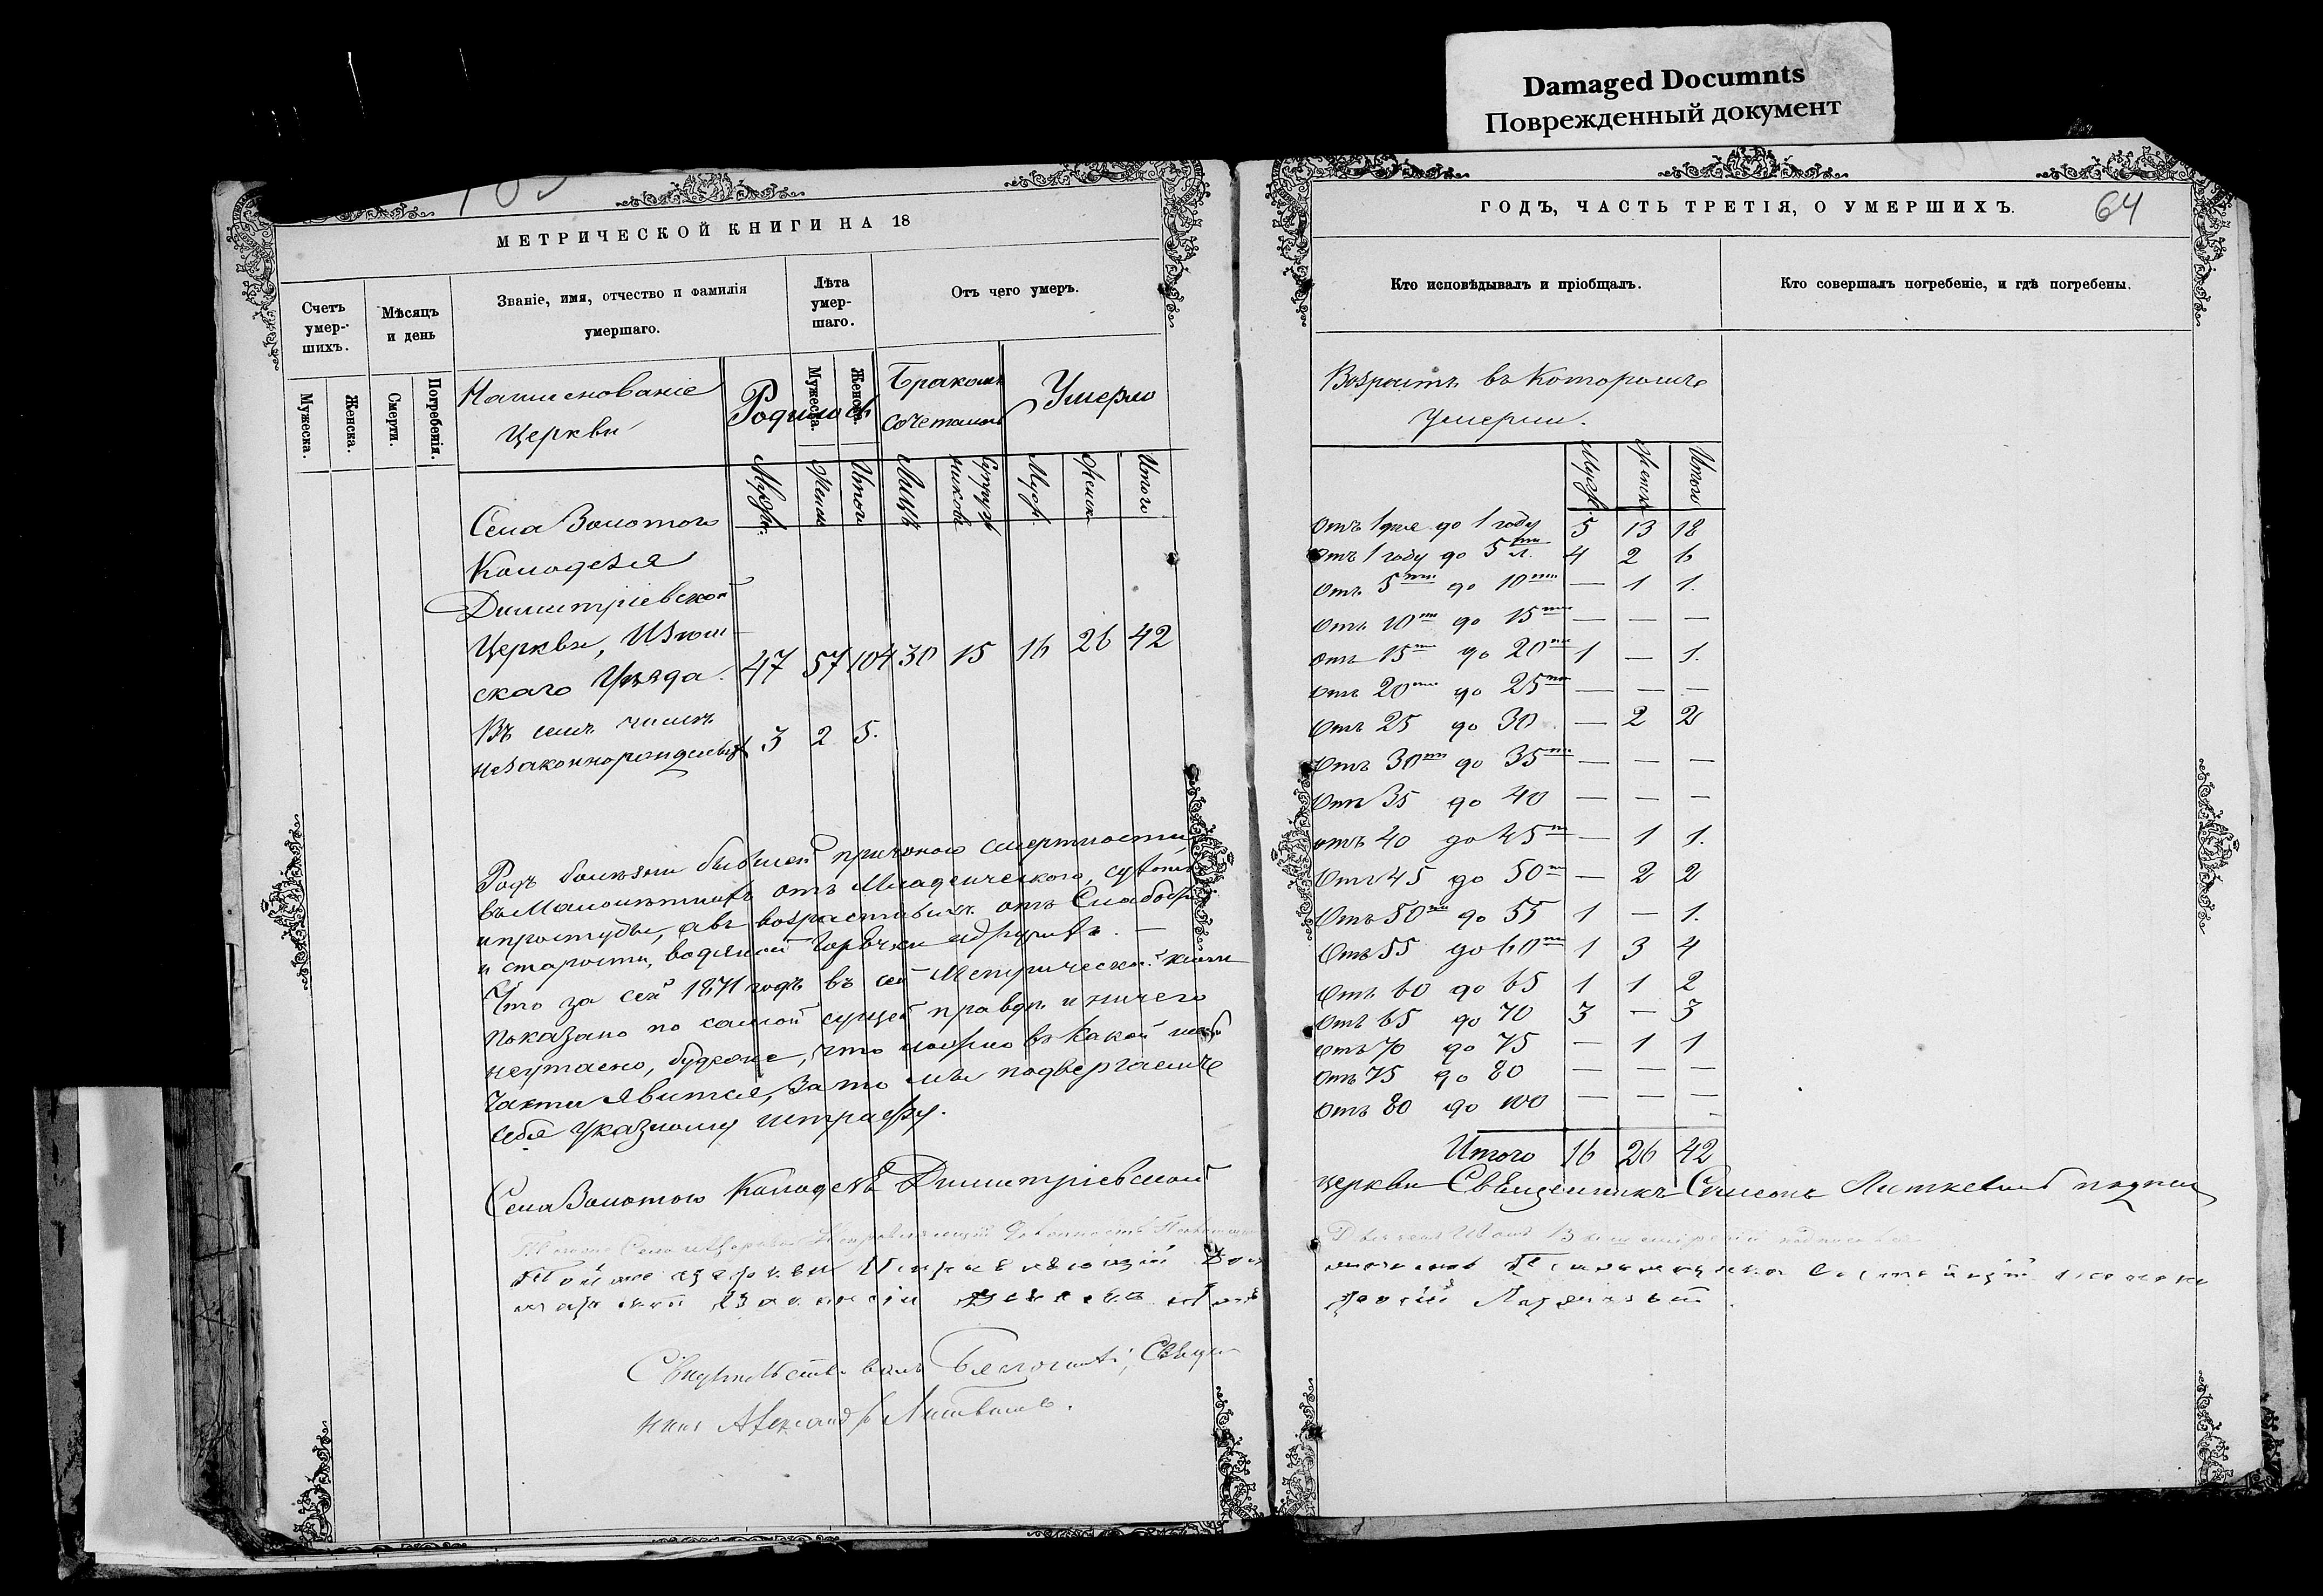 Damaged Documnts
Поврежденный документ
МЕТРИЧЕСКОЙ КНИГИ НА 18
Счетъ умер-шихъ.
Мѣсяцъ и день
Званіе, имя, отчество и фамилія умершаго.
Лѣта умер-шаго.
Отъ чего умеръ.
Мужеска.
Женска.
Смерти.
Погребенія.
Мужеска.
Женска.
Наименованіе Церкви
Родилось
Бракомъ сочетались
Умерло
Мужск.
Женск
Итого
Лицъ
Супруж никовъ
Муж.
Женск
Итого
Села Золотого
Колодезя
Димитріевской
Церкви, Изюм-
скаго Уѣзда. 47 57 104 30 15 16 26 42
Въ семъ числѣ
незаконнорожденныхъ 3 2 5.
Родъ болѣзни бывшей причиною смертности
въ малолѣтнихъ отъ Младенческого,
и простуды, а въ возрастныхъ отъ Слабости
и старости, водяной горячки и другихъ. —
Что за сей 1871 годъ въ сей Метрической книги
показано по самой сущей правдѣ и ничего
неутаено, будеже, что ложно въ какой либо
части явится, за то мы подвергаемъ
себя указному штрафу.
Села Золотого Колодезя Димитріевской
Той же церкви Исправляющій Дол
Свидѣтельствовалъ Благочинный, Свящ
никъ Александръ
ГОДЪ, ЧАСТЬ ТРЕТІЯ, О УМЕРШИХЪ.
64
Кто исповѣдывалъ и пріобщалъ.
Кто совершалъ погребеніе, и гдѣ погребены.
Возрастъ въ Которомъ
Умерли.
Мужск.
Женск
Итого
Отъ 1 дне до 1 году 5 13 18
Отъ 1 году до 5ти л. 4 2 6
Отъ 5ти до 10ти — 1 1.
Отъ 10ти до 15ти — — —
Отъ 15ти до 20ти 1 — 1.
Отъ 20ти до 25ти — — —
Отъ 25 до 30 — 2 2
Отъ 30ти до 35ти — — —
Отъ 35 до 40 — — —
Отъ 40 до 45ти — 1 1.
Отъ 45 до 50ти — 2 2
Отъ 50ти до 55 1 — 1.
Отъ 55 до 60ти 1 3 4
Отъ 60 до 65 1 1 2
Отъ 65 до 70 3 — 3
Отъ 70 до 75 — 1 1
Отъ 75 до 80 — — —
Отъ 80 до 100 — — —
Итого 16 26 42
церкви Священникъ Симеонъ